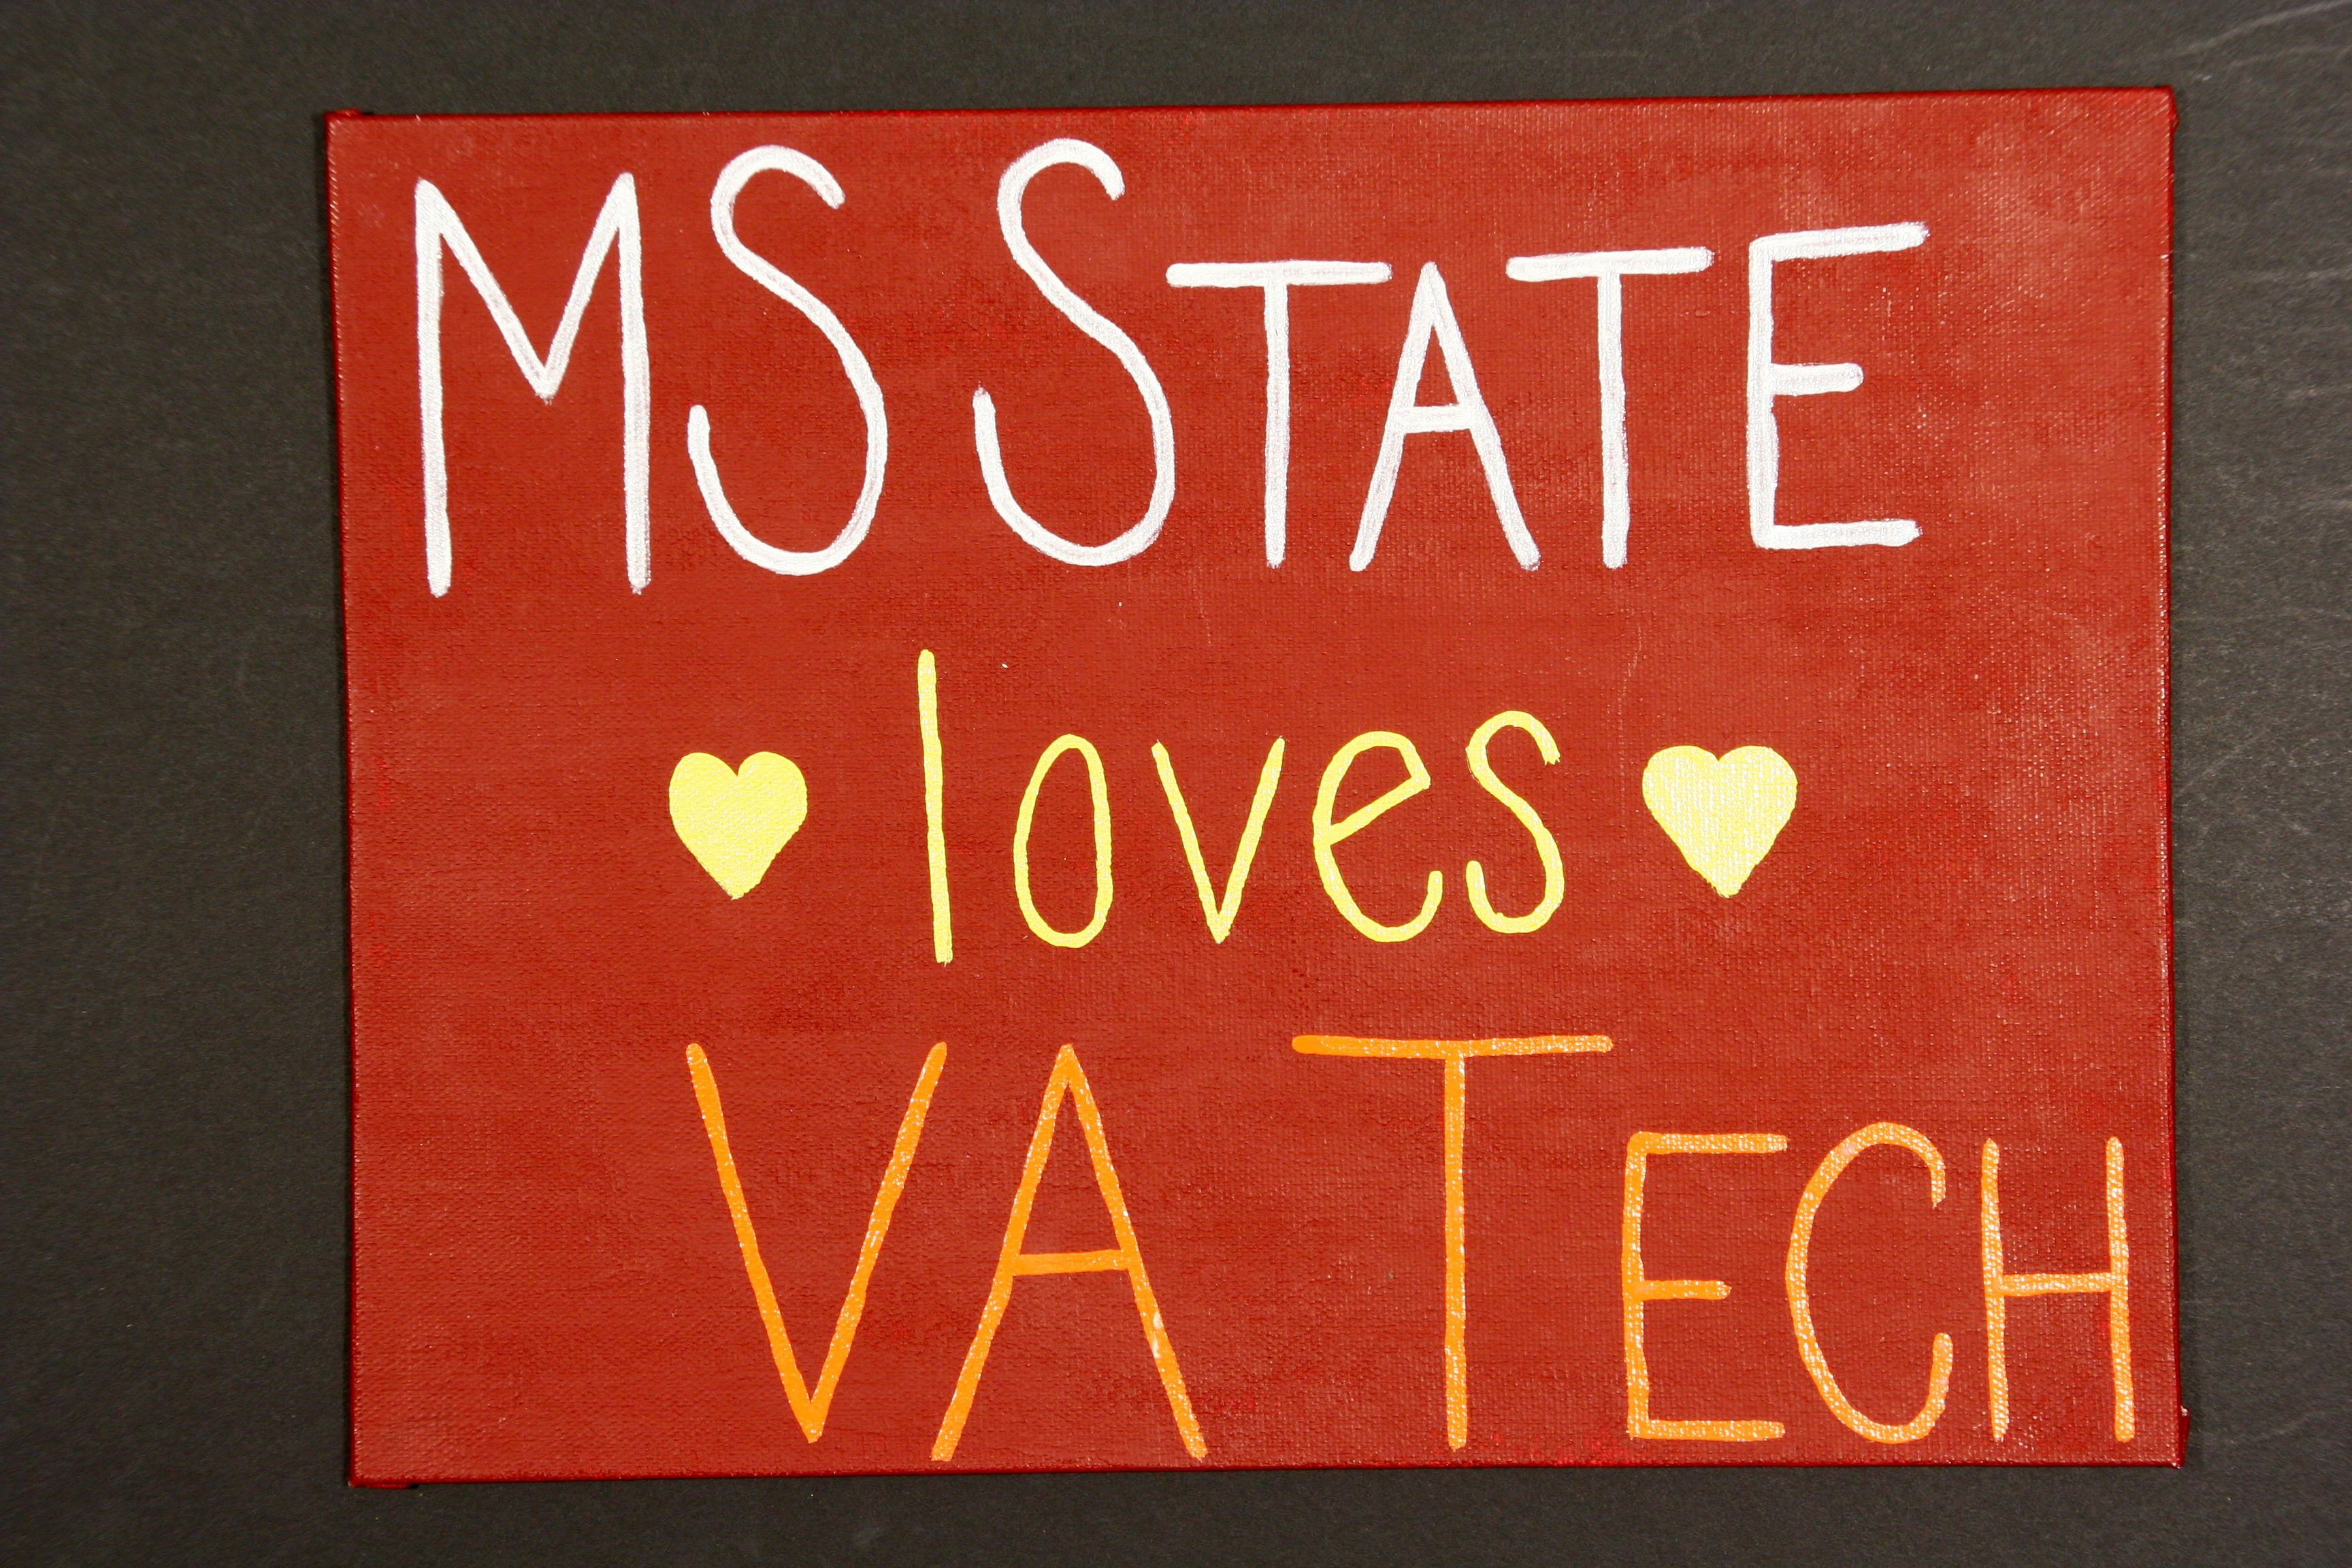 MS STATE
loves
VA TECH